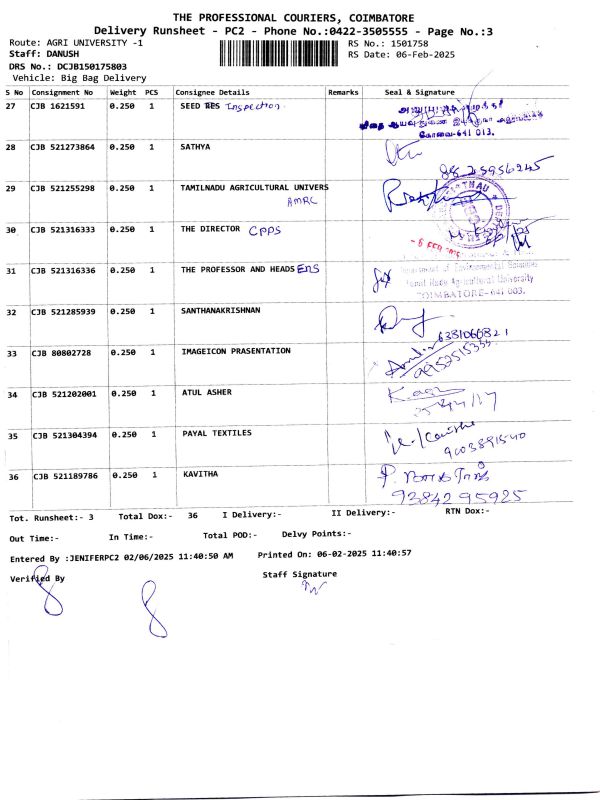 THE PROFESSIONAL COURIERS, COIMBATORE
Delivery Runsheet - PC2 - Phone No.:0422-3505555 - Page No.:3
Route: AGRI UNIVERSITY -1
RS No.: 1501758
Staff: DANUSH
RS Date: 06-Feb-2025
DRS No.: DCJB150175803
Vehicle: Big Bag Delivery
S No Consignment No Weight PCS Consignee Details Remarks Seal & Signature
27 CJB 1621591 0.250 1 SEED RES Inspection
கோவை-641 013.
28 CJB 521273864 0.250 1 SATHYA
29 CJB 521255298 0.250 1 TAMILNADU AGRICULTURAL UNIVERS
AMRC
30 CJB 521316333 0.250 1 THE DIRECTOR CPPS
31 CJB 521316336 0.250 1 THE PROFESSOR AND HEADS ENS
Department of Environmental Sciences
Tamil Nadu Agricultural University
COIMBATORE-641 003.
32 CJB 521285939 0.250 1 SANTHANAKRISHNAN
6381066821
33 CJB 80802728 0.250 1 IMAGEICON PRASENTATION
34 CJB 521202001 0.250 1 ATUL ASHER
35 CJB 521304394 0.250 1 PAYAL TEXTILES
36 CJB 521189786 0.250 1 KAVITHA
93842 95925
Tot. Runsheet:- 3 Total Dox:- 36 I Delivery:- II Delivery:- RTN Dox:-
Out Time:- In Time:- Total POD:- Delvy Points:-
Entered By :JENIFERPC2 02/06/2025 11:40:50 AM Printed On: 06-02-2025 11:40:57
Verified By
Staff Signature